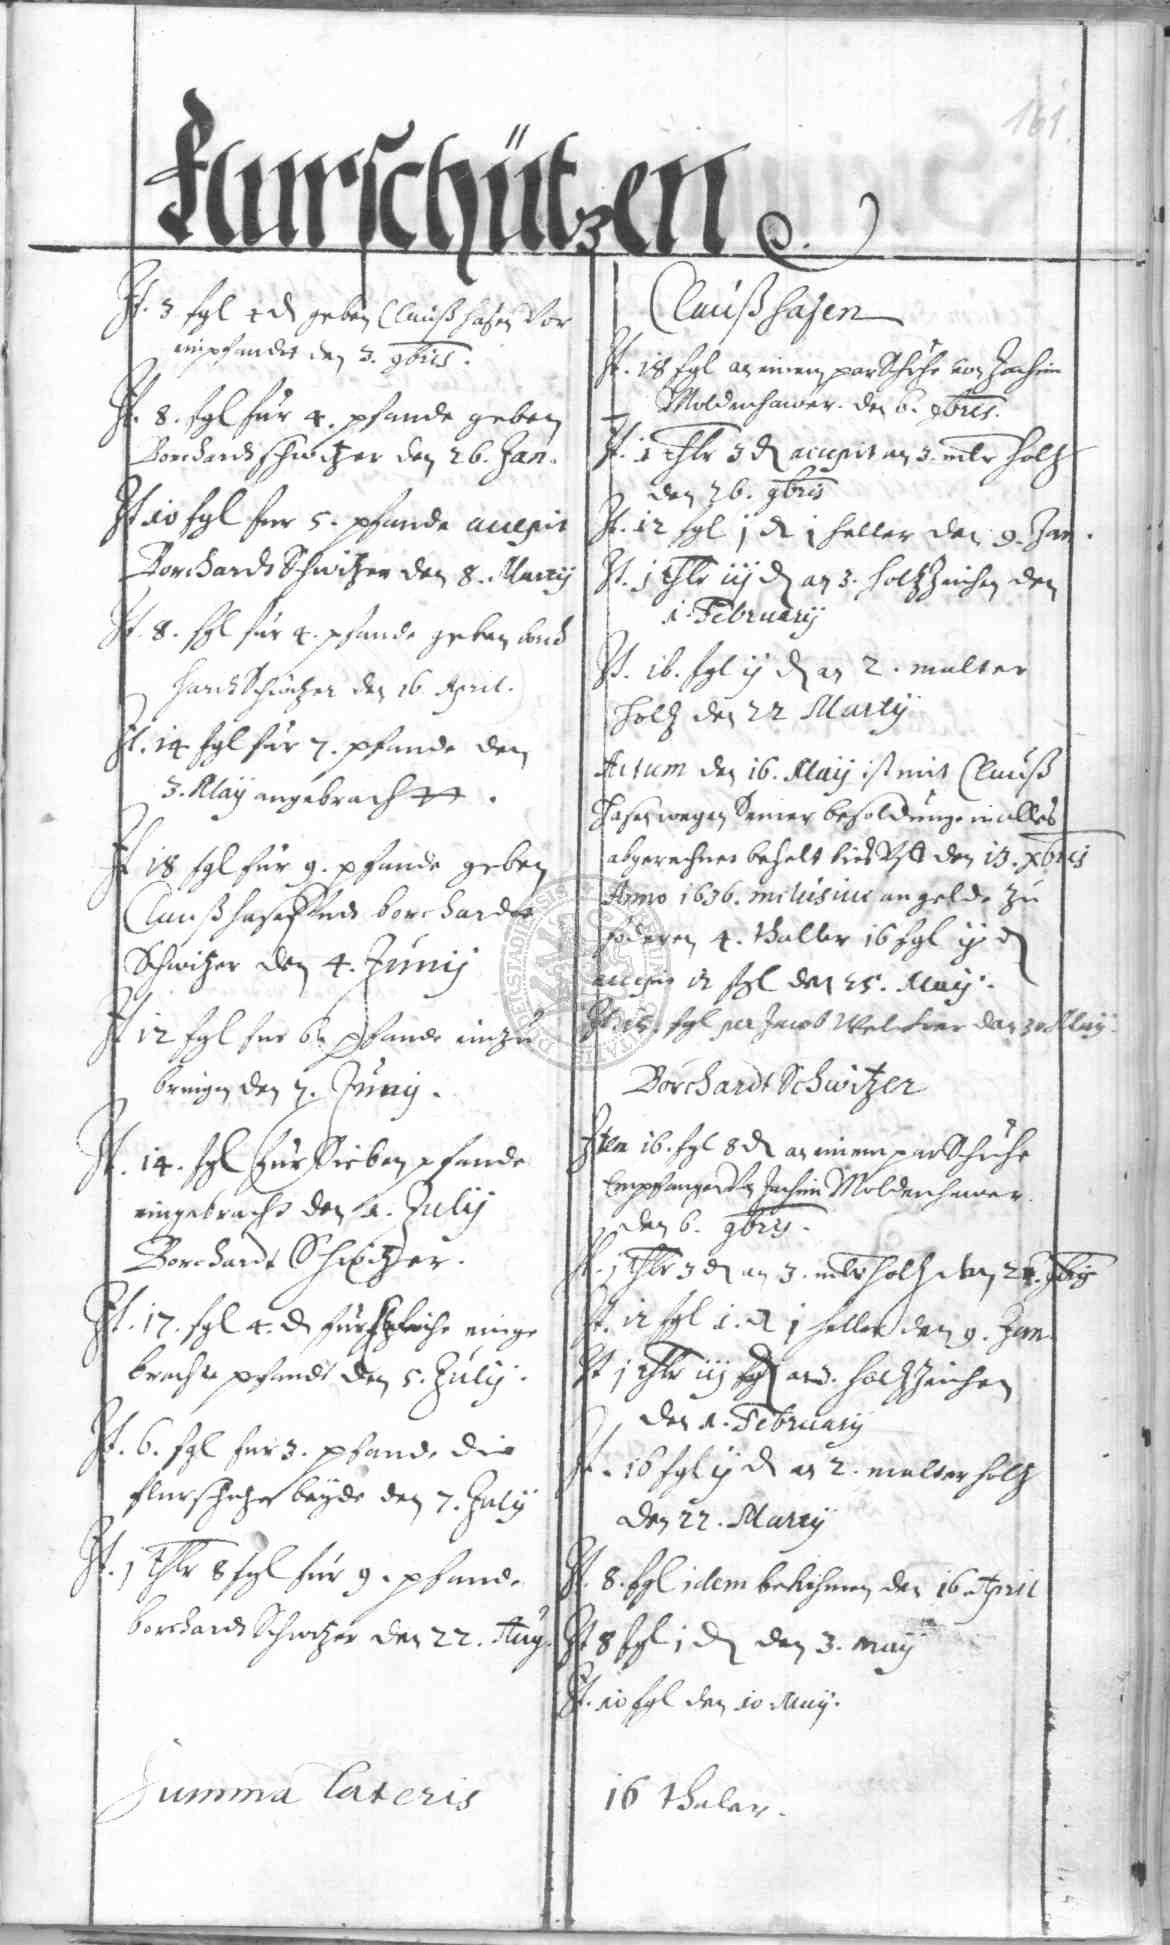 161.
Flurschützen
It. 3 sgl 4 d geben Claüß hasen vor
einpfandet den 3. 9bris.
It. 8. sgl für 4. pfande geben
Borchardt schwitzer den 26. Jan.
It 10 sgl fur 5. pfande accepit
Borchardt Schwitzer den 8. Marty
It. 8. sgl für 4. pfande geben borc
hardt Schwitzer den 16. April.
It. 14 sgl für 7. pfande den
3. May angebracht.
It 18 sgl für 9. pfande geben
Clauß hasen Undt borchardt
Schwitzer den 4. Junij
It 12 sgl fur 6. pfande einzu
bringen den 7. Junij.
It. 14. sgl für Sieben pfande
eingebracht den 1. Julij
Borchardt Schwitzer.
It. 17. sgl 4. d für einge
brachte pfandt den 5. Julij.
It. 6. sgl fur 3. pfande die
flurschutzen beyde den 7. Julij
It. 1 thlr 8 sgl für 9. pfande
borchardt Schwitzer den 22. Aug.
Summa Lateris
Claüß hasen
It. 18 sgl an einem par Schuhe von Jochim
Moldenhawer. den 6. 9bris.
It. 1 thlr 3 d accepit an 3. mltr holtz
den 26. 9bris
It. 12 sgl j d j heller den 9. Jan.
It. j thlr iij d an 3. holtzzeichen den
1. February
It. 16. sgl ij d an 2. malter
holtz den 22 Marty
Actum den 16. Maij ist mit Clauß
Hasen wegen Seiner besoldunge in alles
abgerechnet behelt bies den 13. xbris
Anno 1636. inclusive an gelde zu
foderen 4. thaller 16 sgl ij d
accepit 12 sgl den 25. Maij.
It. 18. sgl per Jacob den 30 Maij.
Borchardt Schwitzer
Item 16. sgl 8 d an einem par Schuhe
Empfangen Von Jochim Moldenhawer
den 6. 9bris.
It. j thlr 3 d an 3. mltr holtz den 24. 9bris
It. 12 sgl 1. d j heller den 9. Jan.
It j thlr iij d an 3. holtzzeichen
den 1. February
It. 16 sgl ij d an 2. malter holtz
den 22. Marty
It. 8. sgl idem bekohmen den 16 April
It 8 sgl 1 d den 3. may
It. 10 sgl den 10 Maij.
16 thaler.